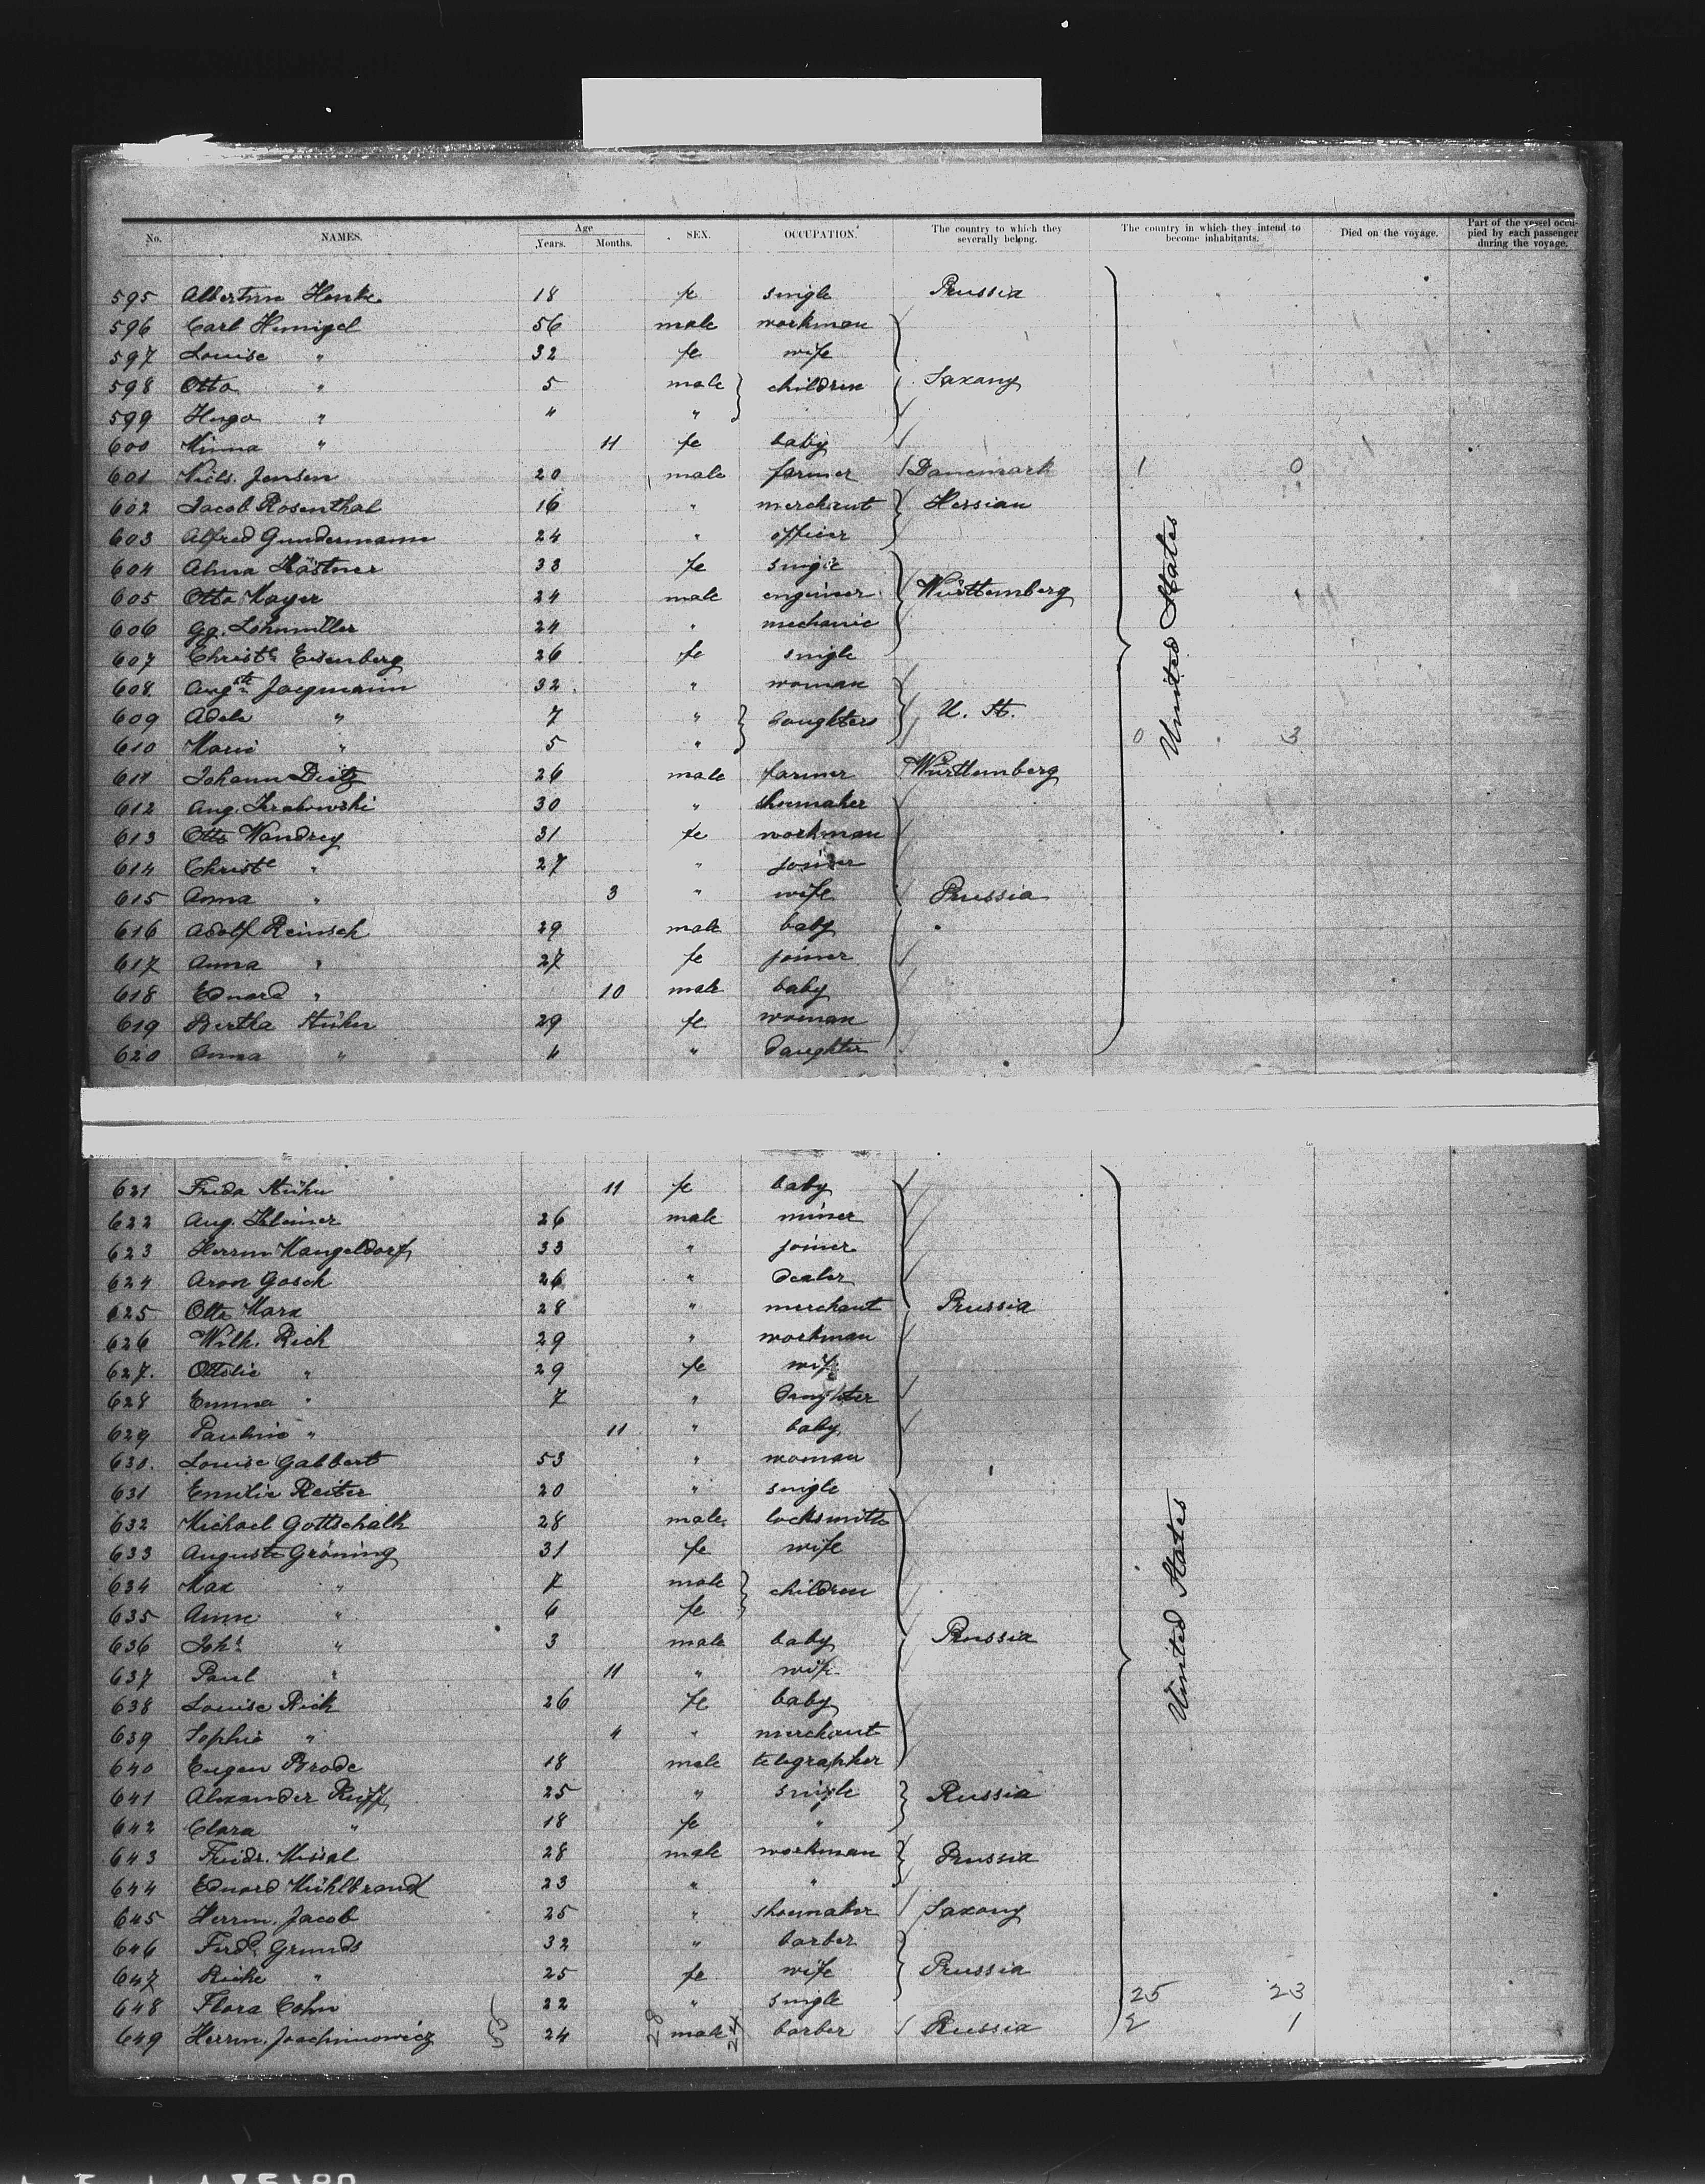 No. NAMES. Age Years. Months. SEX. OCCUPATION. The country to which they severally belong. The country in which they intend to become inhabitants. Died on the voyage. Part of the vessel occupied by each passenger during the voyage.
595 Albertine Henke 18 fe single Prussia
596 Carl Hunigel 56 male workman
597 Louise " 32 fe wife
598 Otto " 5 male children Saxony
599 Hugo " 4 "
600 Minna " 11 fe baby
601 Niels Jensen 20 male farmer Danemark 1 0
602 Jacob Rosenthal 16 " merchant Hessian
603 Alfred Gundermann 24 " officer
604 Alma Kästner 33 fe single
605 Otto Mayer 24 male engineer Württemberg
606 Gg. Lohmüller 24 " mechanic
607 Christe Eisenberg 26 fe single
608 Augste 32 " woman
609 Adele " 7 " daughters U. St.
610 Marie " 5 " 0 3
United States
611 Johann Dietz 26 male farmer Württemberg
612 Aug. 30 " shoemaker
613 Otto Wandrey 31 fe workman
614 Christe " 27 " joiner
615 Anna " 3 " wife Prussia
616 Adolf Reinsch 29 male baby
617 Anna " 27 fe joiner
618 Eduard " 10 male baby
619 Bertha Stühn 29 fe woman
620 Anna " 4 " daughter
621 Frida Stühn 11 fe baby
622 Aug. Kleiner 26 male miner
623 Herrm Mangeldorf 33 " joiner
624 Aron Gosch 26 " dealer
625 Otto Marx 28 " merchant Prussia
626 Wilh. Rick 29 " workman
627. Ottilie " 29 fe wife
628 Emma " 7 " daughter
629 Pauline " 11 " baby
630. Louise Gabbert 53 " woman
631 Emilie Reiter 20 " single
632 Michael Gottschalk 28 male locksmith
633 Auguste Gröning 31 fe wife
634 Max " 7 male children
635 Anne " 6 fe
636 Johs " 3 male baby Prussia
637 Paul " 11 " wife
United States
638 Louise Rick 26 fe baby
639 Sophie " 4 " merchant
640 Eugen Brode 18 male telegrapher
641 Alexander Ruff 25 " single Russia
642 Clara " 18 fe "
643 Friedr. Missal 28 male workman Prussia
644 Eduard Mühlbrandt 23 " "
645 Herrm. Jacob 25 " shoemaker Saxony
646 Ferd. Grunds 32 " barber
647 Rieke " 25 fe wife Prussia
648 Flora Cohn 22 " single 25 23
649 Herrm. Joachimowicz 55 24 28 male 24 barber Russia 2 1